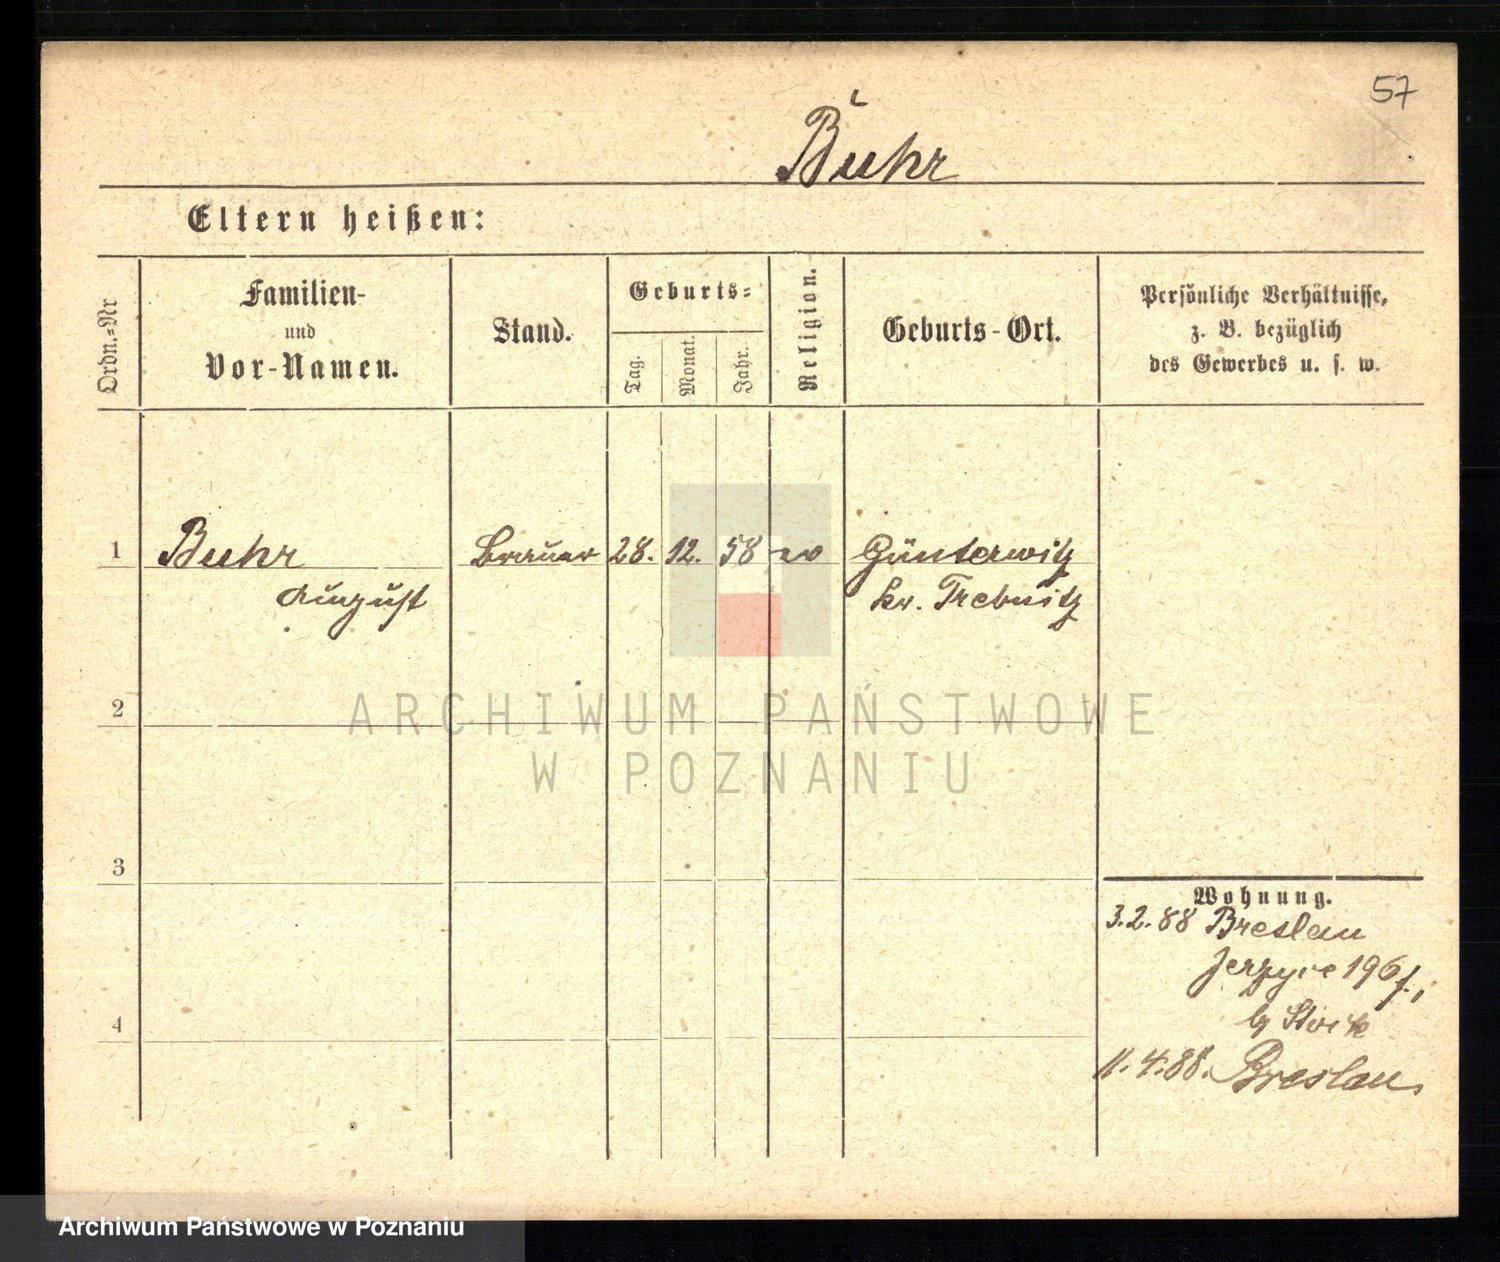 57
Buhr
Eltern heißen:
Ordn.-Nr
Familien-
und
Vor-Namen.
Stand.
Geburts-
Tag.
Monat.
Jahr.
Religion.
Geburts-Ort.
Persönliche Verhältnisse,
z. B. bezüglich
des Gewerbes u. s. w.
1 Buhr Brauer 28. 12. 58 ev Günterwitz
August kr. Trebnitz
2
ARCHIWUM PAŃSTWOWE
W POZNANIU
3
Wohnung.
3.2.88 Breslau
Jerzyce 196
4
11.4.88. Breslau
Archiwum Państwowe w Poznaniu